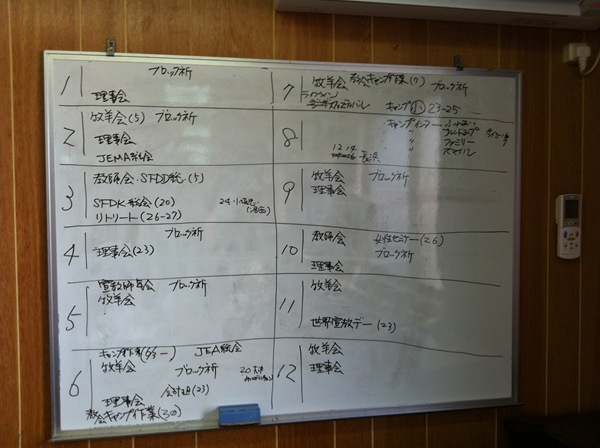 1 ブロック祈
理事会
2 牧羊会(5) ブロック祈
理事会
JEMA総会
3 教師会・SFDD総(5)
SFDK総会(20)
リトリート(26-27)
4 ブロック祈
理事会(23)
5 宣教師総会 ブロック祈
牧羊会
6 キャンプ作業 JEA総会
牧羊会 ブロック祈
理事会 会計(23)
教会キャンプ作業(30)
7 牧羊会 教会キャンプ作業(7) ブロック祈
キャンプ小 23-25
8 キャンプインフー
〃
〃 ファミリー
〃
12 14
長浜
9 牧羊会 ブロック祈
理事会
10 教師会 女性セミナー(26)
ブロック祈
理事会
11 牧羊会
世界宣教デー(23)
12 牧羊会
理事会